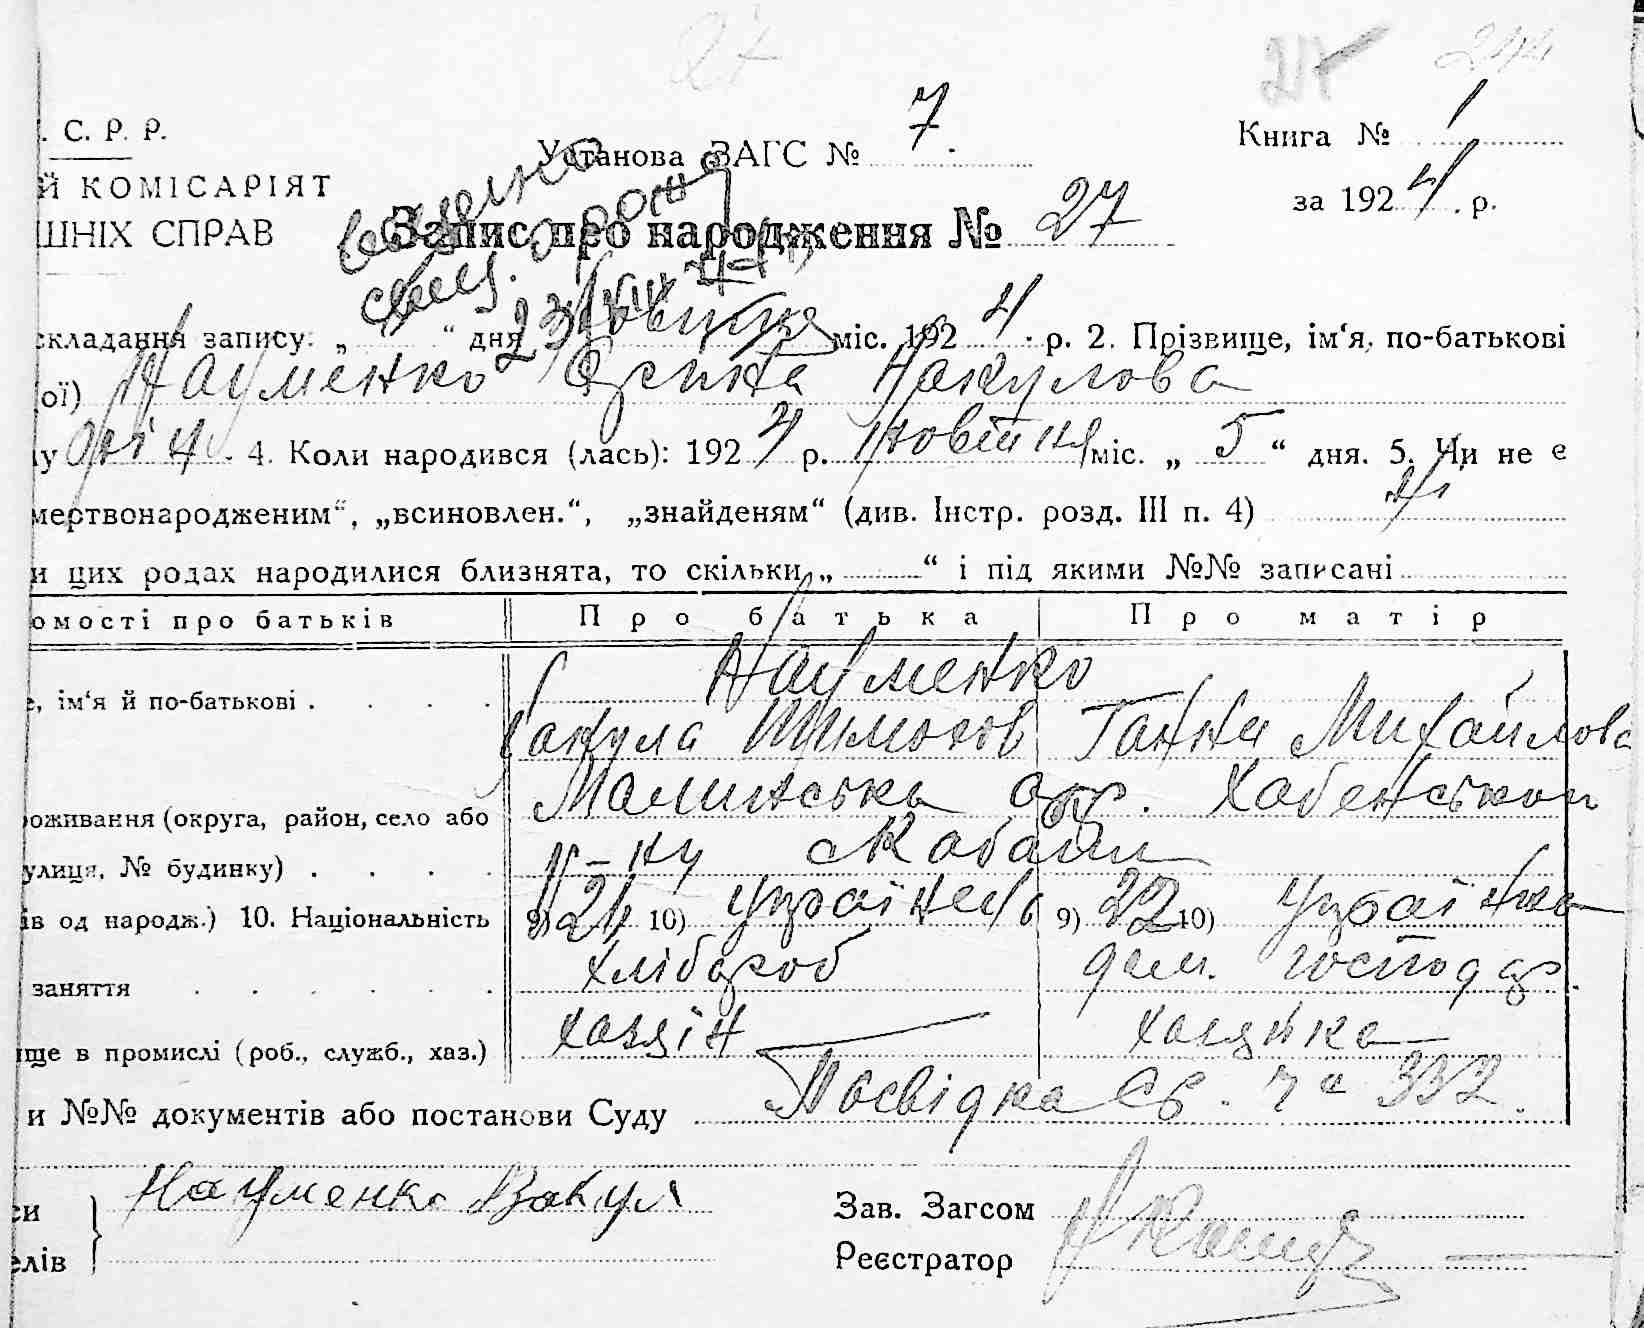 27 244
. С. Р. Р. Установа ЗАГС № 7. Книга № 1
Й КОМІСАРІЯТ за 1924 р.
ШНІХ СПРАВ Запис про народження № 27
складання запису: „ “ дня 23 міс. 1924 р. 2. Прізвище, ім‘я, по-батькові
ої) Науменко Вакулова
у 4. Коли народився (лась): 1924 р. Жовтня міс. „ 5 “ дня. 5. Чи не є
мертвонародженим“, „всиновлен.“, „знайденям“ (див. Інстр. розд. III п. 4) ні
и цих родах народилися близнята, то скільки „ “ і під якими №№ записані
омості про батьків Про батька Про матір
Науменко
, ім‘я й по-батькові . . . . Вакула Тимохов Ганни Михайлова
Малинська окр. Хабенського
оживання (округа, район, село або
улиця, № будинку) . . . . Р-ну с Кобани
ів од народж.) 10. Національність 9) 24 10) українець 9) 22 10) українка
хлібороб дом. господар.
заняття . . . . . .
хазяін хазяйка
ще в промислі (роб., служб., хаз.)
и №№ документів або постанови Суду Посвідка С/р. ч 332.
си Науменко Вакул Зав. Загсом
елів Реєстратор